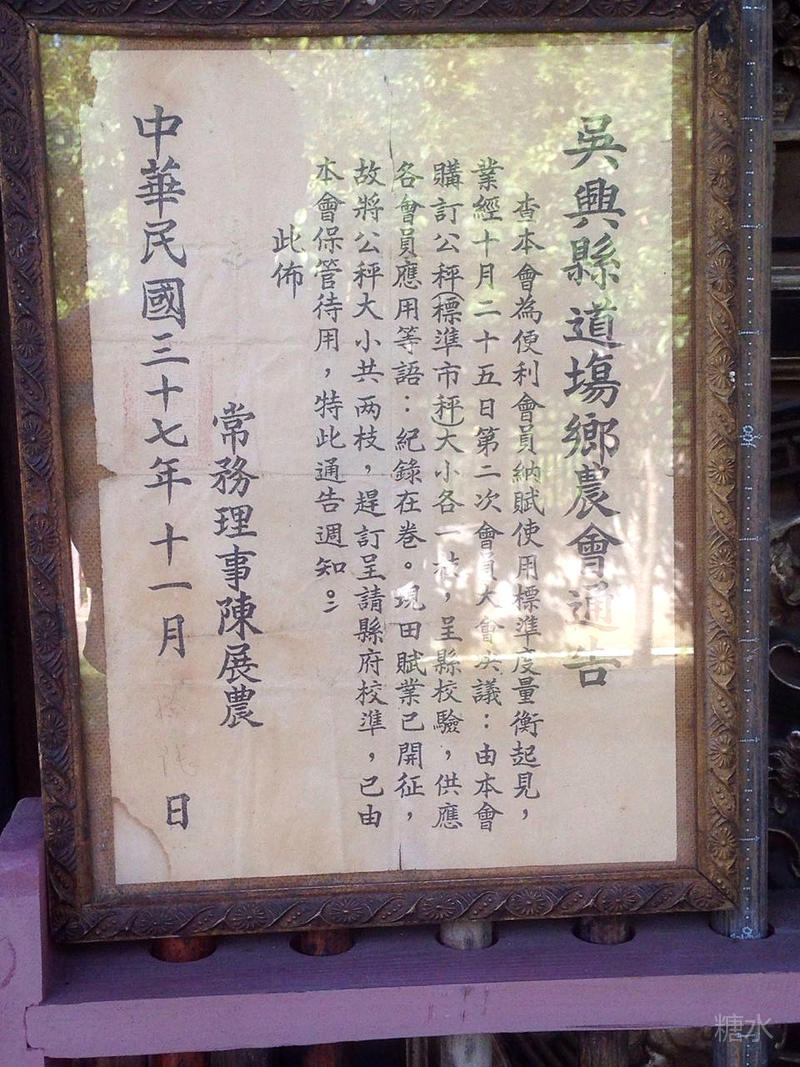 吳興縣道場鄉農會通告
查本會為便利會員納賦使用標準度量衡起見，
業經十月二十五日第二次會員大會决議：由本會
購訂公秤（標準市秤）大小各一枝，呈縣校驗，供應
各會員應用等語：紀錄在卷。現田賦業已開征，
故將公秤大小共两枝，趕訂呈請縣府校準，已由
本會保管待用，特此通告週知。
此佈
常務理事陳展農
中華民國三十七年十一月 日
糖水